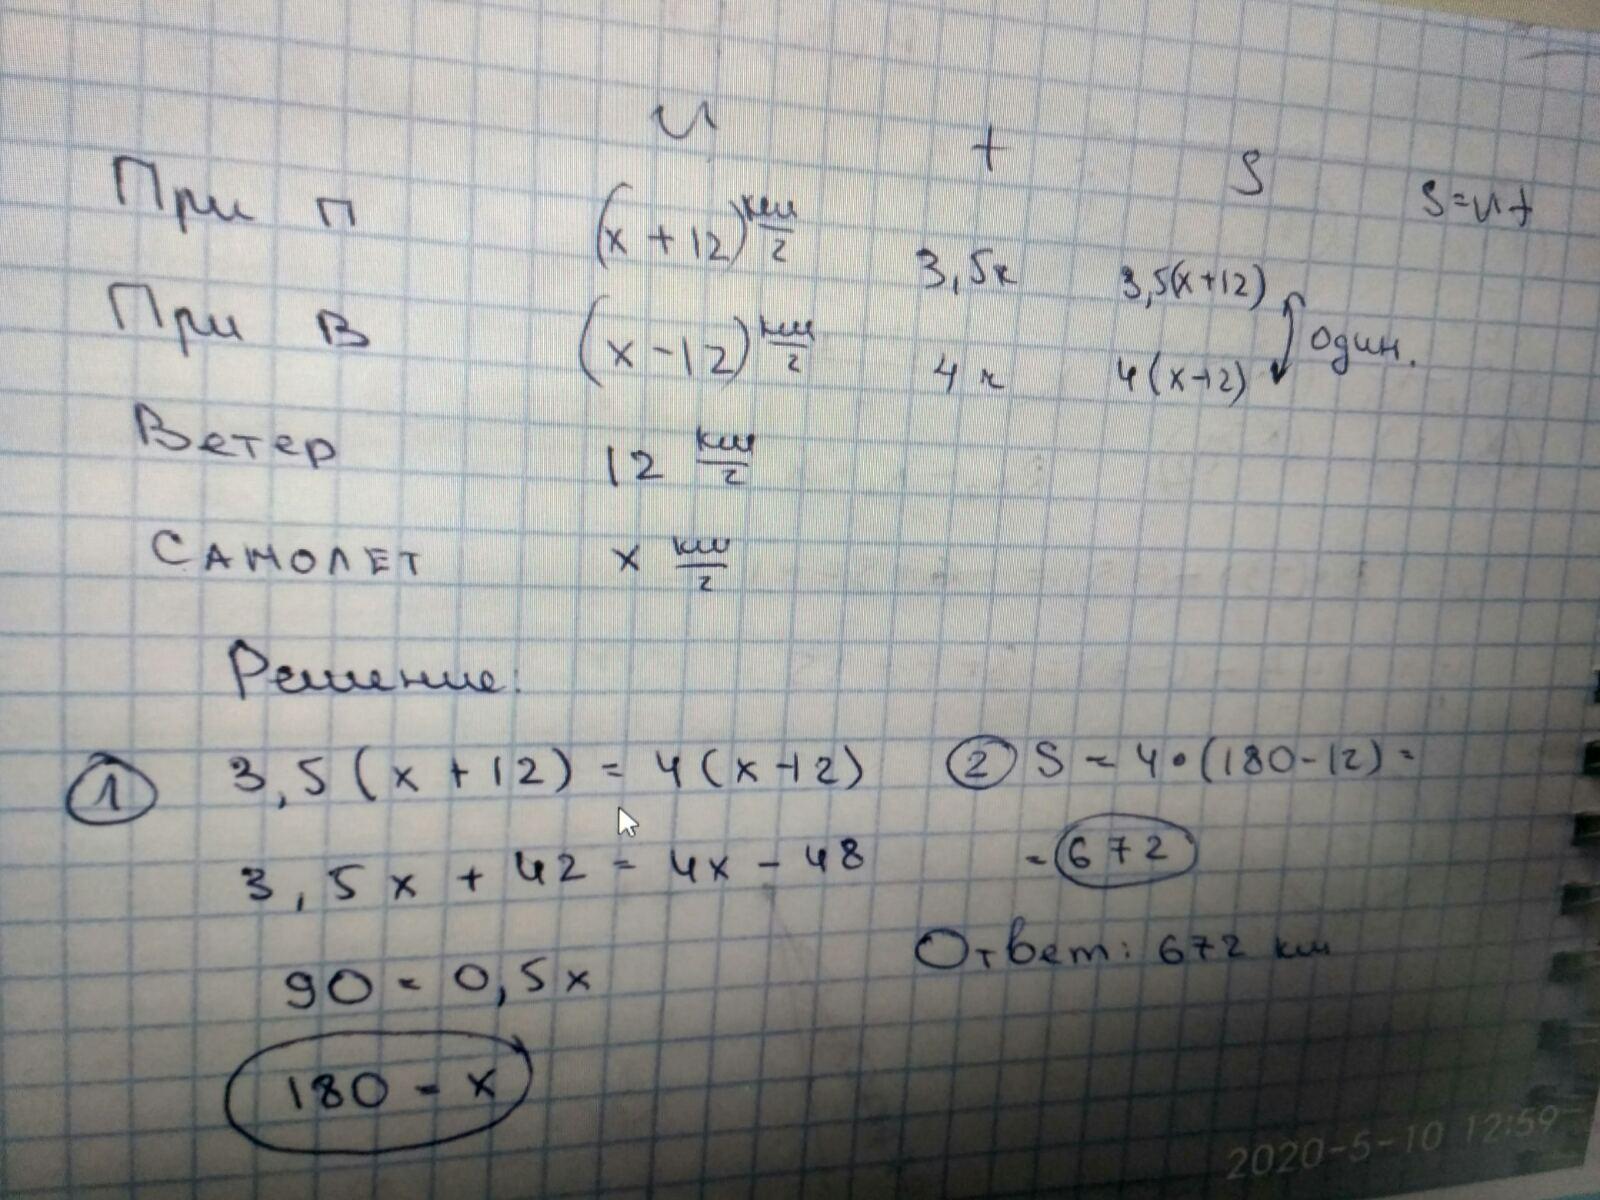 υ t S S=υt
При п (x+12) км/г 3,5ч 3,5(x+12)
один.
При В (x-12) км/г 4ч 4(x-12)
Ветер 12 км/г
САМОЛЕТ x км/г
Решение:
① 3,5(x+12)=4(x-12) ② S=4•(180-12)=
3,5x+42=4x-48 =672
90=0,5x Ответ: 672 км
180=x
2020-5-10 12:59